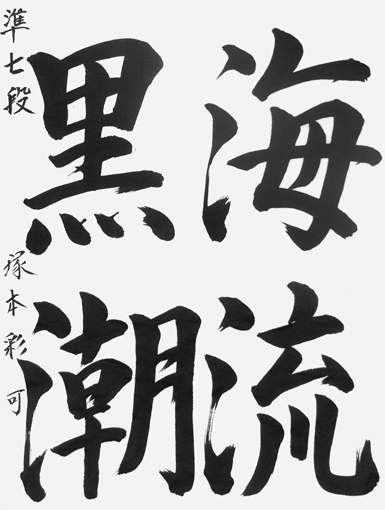 海流
黒潮
準七段 塚本彩可